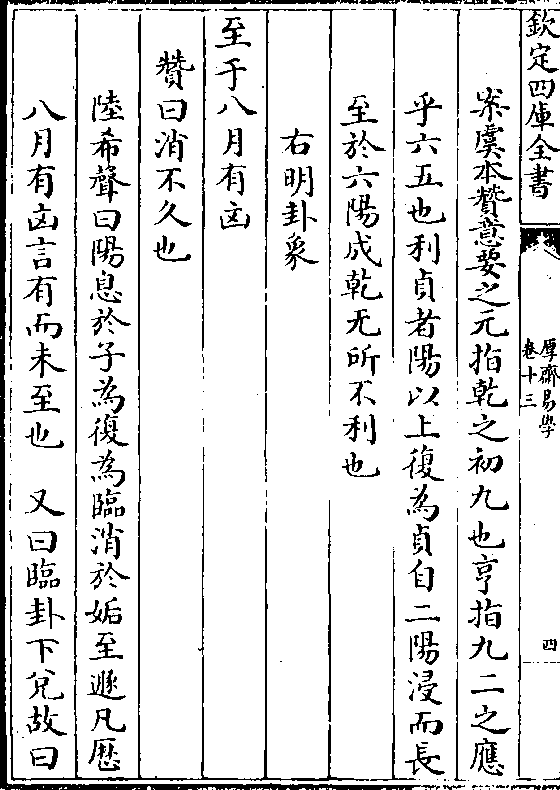 欽定四庫全書
厚齋易學
卷十三
四
案虞本贊意要之元指乾之初九也亨指九二之應
乎六五也利貞者陽以上復為貞自二陽浸而長
至於六陽成乾无所不利也
右明卦象
至于八月有凶
贊曰消不久也
陸希聲曰陽息於子為復為臨消於姤至遯凡歷
八月有凶言有而未至也　又曰臨卦下兊故曰